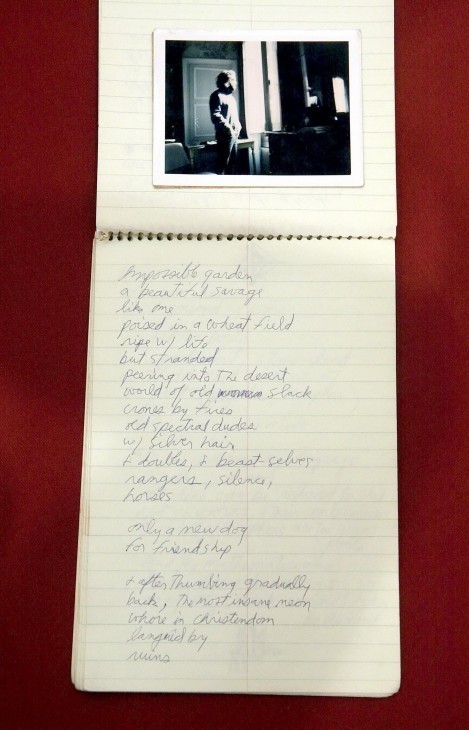 Impossible garden
a beautiful savage
like me
poised in a wheat field
ripe w/ life
but stranded
peering into The desert
world of old slack
crones by fires
old spectral dudes
w/ silver hair
& doubles, & beast-selves
rangers, silence,
horses
only a new dog
for friendship
& after Thumbing gradually
back, The most insane neon
whore in christendom
languid by
ruins